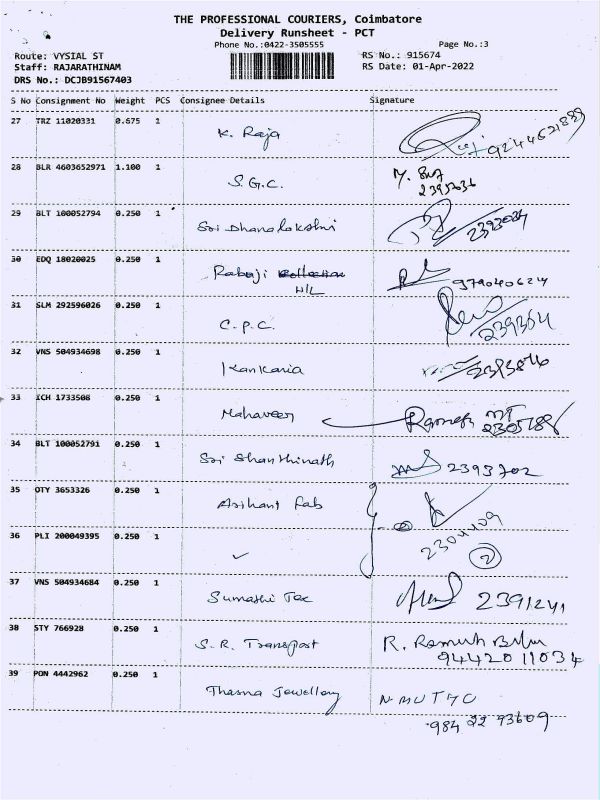 THE PROFESSIONAL COURIERS, Coimbatore
Delivery Runsheet - PCT
Phone No.:0422-3505555
Page No.:3
Route: VYSIAL ST
RS No.: 915674
Staff: RAJARATHINAM
RS Date: 01-Apr-2022
DRS No.: DCJB91567403
S No Consignment No Weight PCS Consignee Details Signature
27 TRZ 11020331 0.675 1 K. Raja
28 BLR 4603652971 1.100 1 S.G.C.
29 BLT 100052794 0.250 1 Sri Dhanalakshmi
30 EDQ 18020025 0.250 1 979040624
H/L
31 SLM 292596026 0.250 1 C.P.C. 239364
32 VNS 504934698 0.250 1 Kankaria
33 ICH 1733508 0.250 1 Mahaveer Ramesh
34 BLT 100052791 0.250 1 Sri Shanthinath 2393702
35 OTY 3653326 0.250 1 Arihant Fab
36 PLI 200049395 0.250 1 2304409
2
37 VNS 504934684 0.250 1 Sumathi Tex 2391241
38 STY 766928 0.250 1 S.R. Transport R. Ramesh
9442011034
39 PON 4442962 0.250 1 Jewellery
984 22 93609